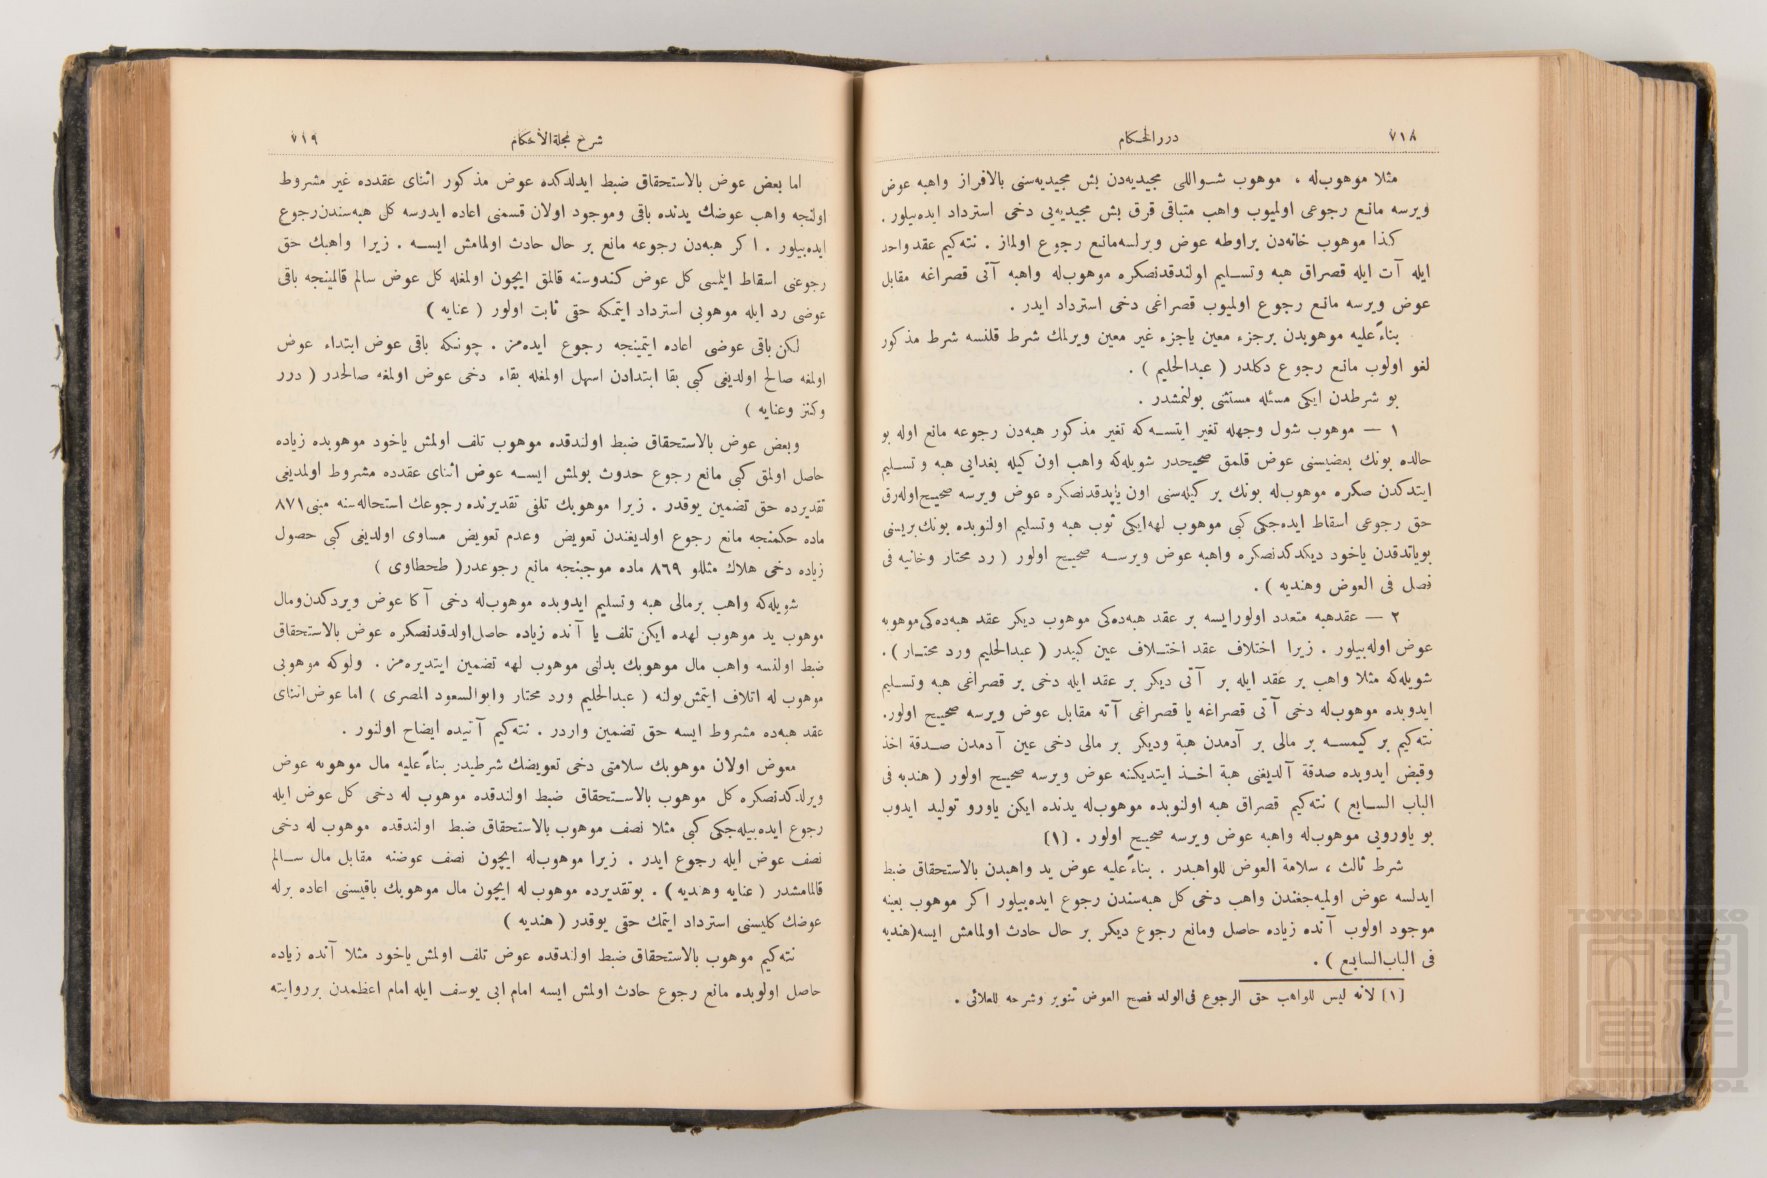 ٧١٨
دررالحكام
مثلا موهوب‌له ، موهوب شواللی مجیدیه‌دن بش مجیدیه‌سنی بالافراز واهبه عوض
ویرسه مانع رجوعی اولمیوب واهب متباقی قرق بش مجیدیه‌یی دخی استرداد ایده‌بیلور .
كذا موهوب خانه‌دن براوطه عوض ویرلسه‌مانع رجوع اولماز . نته‌كیم عقدواحد
ایله آت ایله قصراق هبه وتسلیم اولندقدنصكره موهوب‌له واهبه آتی قصراغه مقابل
عوض ویرسه مانع رجوع اولمیوب قصراغی دخی استرداد ایدر .
بناءً علیه موهوبدن برجزء معین یاجزء غیر معین ویرلمك شرط قلنسه شرط مذكور
لغو اولوب مانع رجوع دكلدر ( عبدالحلیم ) .
بو شرطدن ایكی مسئله مستثنی بولنمشدر .
١ — موهوب شول وجهله تغیر ایتسه‌كه تغیر مذكور هبه‌دن رجوعه مانع اوله بو
حالده بونك بعضیسنی عوض قلمق صحیحدر شویله‌كه واهب اون كیله بغدایی هبه وتسلیم
ایتدكدن صكره موهوب‌له بونك بر كیله‌سنی اون یاپدقدنصكره عوض ویرسه صحیح‌اوله‌رق
حق رجوعی اسقاط ایده‌جكی كبی موهوب لهه‌ایكی ثوب هبه وتسلیم اولنوبده بونك‌بریسنی
بویاتدقدن یاخود دیكدكدنصكره واهبه عوض ویرسه صحیح اولور ( رد محتار وخانیه فی
فصل فی العوض وهندیه ) .
٢ — عقدهبه متعدد اولورایسه بر عقد هبه‌ده‌كی موهوب دیكر عقد هبه‌ده‌كی‌موهوبه
عوض اوله‌بیلور . زیرا اختلاف عقد اختلاف عین كبیدر ( عبدالحلیم ورد محتار ) .
شویله‌كه مثلا واهب بر عقد ایله بر آتی دیكر بر عقد ایله دخی بر قصراغی هبه وتسلیم
ایدوبده موهوب‌له دخی آتی قصراغه یا قصراغی آته مقابل عوض ویرسه صحیح اولور.
نته‌كیم بر كیمسه بر مالی بر آدمدن هبة ودیكر بر مالی دخی عین آدمدن صدقة اخذ
وقبض ایدوبده صدقة آلدیغنی هبة اخذ ایتدیكنه عوض ویرسه صحیح اولور ( هندیه فی
الباب السابع ) نته‌كیم قصراق هبه اولنوبده موهوب‌له یدنده ایكن یاورو تولید ایدوب
بو یاورویی موهوب‌له واهبه عوض ویرسه صحیح اولور . [١]
شرط ثالث ، سلامة العوض للواهبدر . بناءً علیه عوض ید واهبدن بالاستحقاق ضبط
ایدلسه عوض اولمیه‌جغندن واهب دخی كل هبه‌سندن رجوع ایده‌بیلور اكر موهوب بعینه
موجود اولوب آنده زیاده حاصل ومانع رجوع دیكر بر حال حادث اولمامش ایسه(هندیه
فی الباب‌السابع ) .
[١] لانه لیس للواهب حق الرجوع فی‌الولد فصح العوض تنویر وشرحه للعلائی .
شرح مجلةالاحكام
٧١٩
اما بعض عوض بالاستحقاق ضبط ایدلدكده عوض مذكور اثنای عقدده غیر مشروط
اولنجه واهب عوضك یدنده باقی وموجود اولان قسمنی اعاده ایدرسه كل هبه‌سندن‌رجوع
ایده‌بیلور . اكر هبه‌دن رجوعه مانع بر حال حادث اولمامش ایسه . زیرا واهبك حق
رجوعنی اسقاط ایلمسی كل عوض كندوسنه قالمق ایچون اولمغله كل عوض سالم قالمینجه باقی
عوضی رد ایله موهوبی استرداد ایتمكه حقی ثابت اولور ( عنایه )
لكن باقی عوضی اعاده ایتمینجه رجوع ایده‌مز . چونكه باقی عوض ابتداء عوض
اولمغه صالح اولدیغی كبی بقا ابتدادن اسهل اولمغله بقاء دخی عوض اولمغه صالحدر ( درر
وكنز وعنایه )
وبعض عوض بالاستحقاق ضبط اولندقده موهوب تلف اولمش یاخود موهوبده زیاده
حاصل اولمق كبی مانع رجوع حدوث بولمش ایسه عوض اثنای عقدده مشروط اولمدیغی
تقدیرده حق تضمین یوقدر . زیرا موهوبك تلفی تقدیرنده رجوعك استحاله‌سنه مبنی٨٧١
ماده حكمنجه مانع رجوع اولدیغندن تعویض وعدم تعویض مساوی اولدیغی كبی حصول
زیاده دخی هلاك مثللو ٨٦٩ ماده موجبنجه مانع رجوعدر( طحطاوی )
شویله‌كه واهب برمالی هبه وتسلیم ایدوبده موهوب‌له دخی آكا عوض ویردكدن‌ومال
موهوب ید موهوب لهده ایكن تلف یا آنده زیاده حاصل‌اولدقدنصكره عوض بالاستحقاق
ضبط اولنسه واهب مال موهوبك بدلنی موهوب لهه تضمین ایتدیره‌مز . ولوكه موهوبی
موهوب له اتلاف ایتمش‌بولنه ( عبدالحلیم ورد محتار وابوالسعود المصری ) اما عوض‌اثنای
عقد هبه‌ده مشروط ایسه حق تضمین واردر . نته‌كیم آتیده ایضاح اولنور .
معوض اولان موهوبك سلامتی دخی تعویضك شرطیدر بناءً علیه مال موهوبه عوض
ویرلدكدنصكره كل موهوب بالاستحقاق ضبط اولندقده موهوب له دخی كل عوض ایله
رجوع ایده‌بیله‌جكی كبی مثلا نصف موهوب بالاستحقاق ضبط اولندقده موهوب له دخی
نصف عوض ایله رجوع ایدر . زیرا موهوب‌له ایچون نصف عوضنه مقابل مال سالم
قالمامشدر ( عنایه وهندیه ) . بوتقدیرده موهوب له ایچون مال موهوبك باقیسنی اعاده برله
عوضك كلیسنی استرداد ایتمك حقی یوقدر ( هندیه )
نته‌كیم موهوب بالاستحقاق ضبط اولندقده عوض تلف اولمش یاخود مثلا آنده زیاده
حاصل اولوبده مانع رجوع حادث اولمش ایسه امام ابی یوسف ایله امام اعظمدن برروایته
TOYO BUNKO